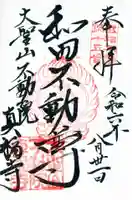 奉拝
令和六年
月廿一日
和田不動尊
大聖山不動院
真福寺